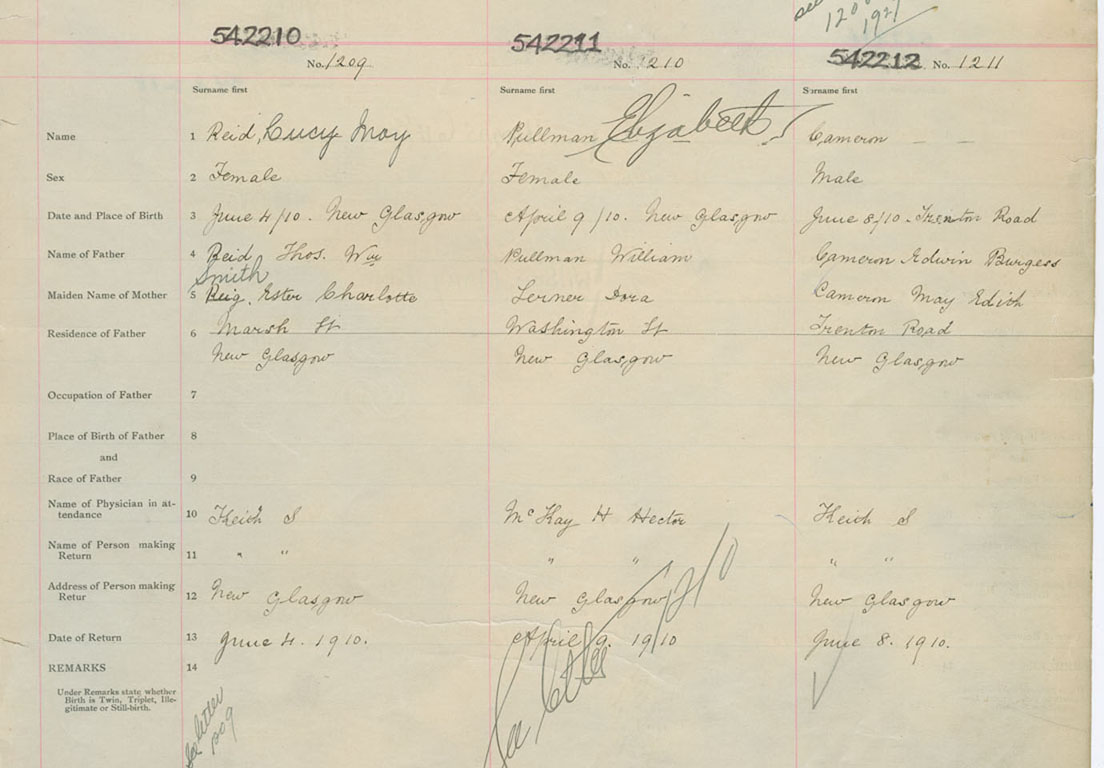 see
120
1921
542210 542211 542212
No. 1209 No. 1210 No. 1211
Surname first Surname first Surname first
Name 1 Reid, Lucy May Pullman Elizabeth Cameron — —
Sex 2 Female Female Male
Date and Place of Birth 3 June 4/10. New Glasgow April 9/10. New Glasgow June 8/10 - Trenton Road
Name of Father 4 Reid Thos. Wm Pullman William Cameron Edwin Burgess
Smith
Maiden Name of Mother 5 Reig, Ester Charlotte Lerner Dora Cameron May Edith
Residence of Father 6 Marsh St Washington St Trenton Road
New Glasgow New Glasgow New Glasgow
Occupation of Father 7
Place of Birth of Father 8
and
Race of Father 9
Name of Physician in at-
tendance 10 Keith S McKay H Hector Keith S
Name of Person making
Return 11 " " " " " "
Address of Person making
Retur 12 New Glasgow New Glasgow New Glasgow
Date of Return 13 June 4. 1910. April 9. 1910 June 8. 1910.
REMARKS 14
Under Remarks state whether
Birth is Twin, Triplet, Ille-
gitimate or Still-birth.
See letter
1209
See letter
1210